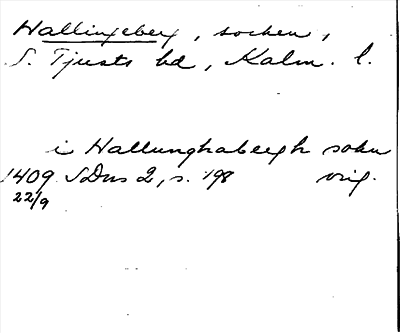 Hallingeberg, socken,
S. Tjusts hd, Kalm. l.
i Hallunghabergh sokn
1409 SDns 2, s. 198 orig.
22/9